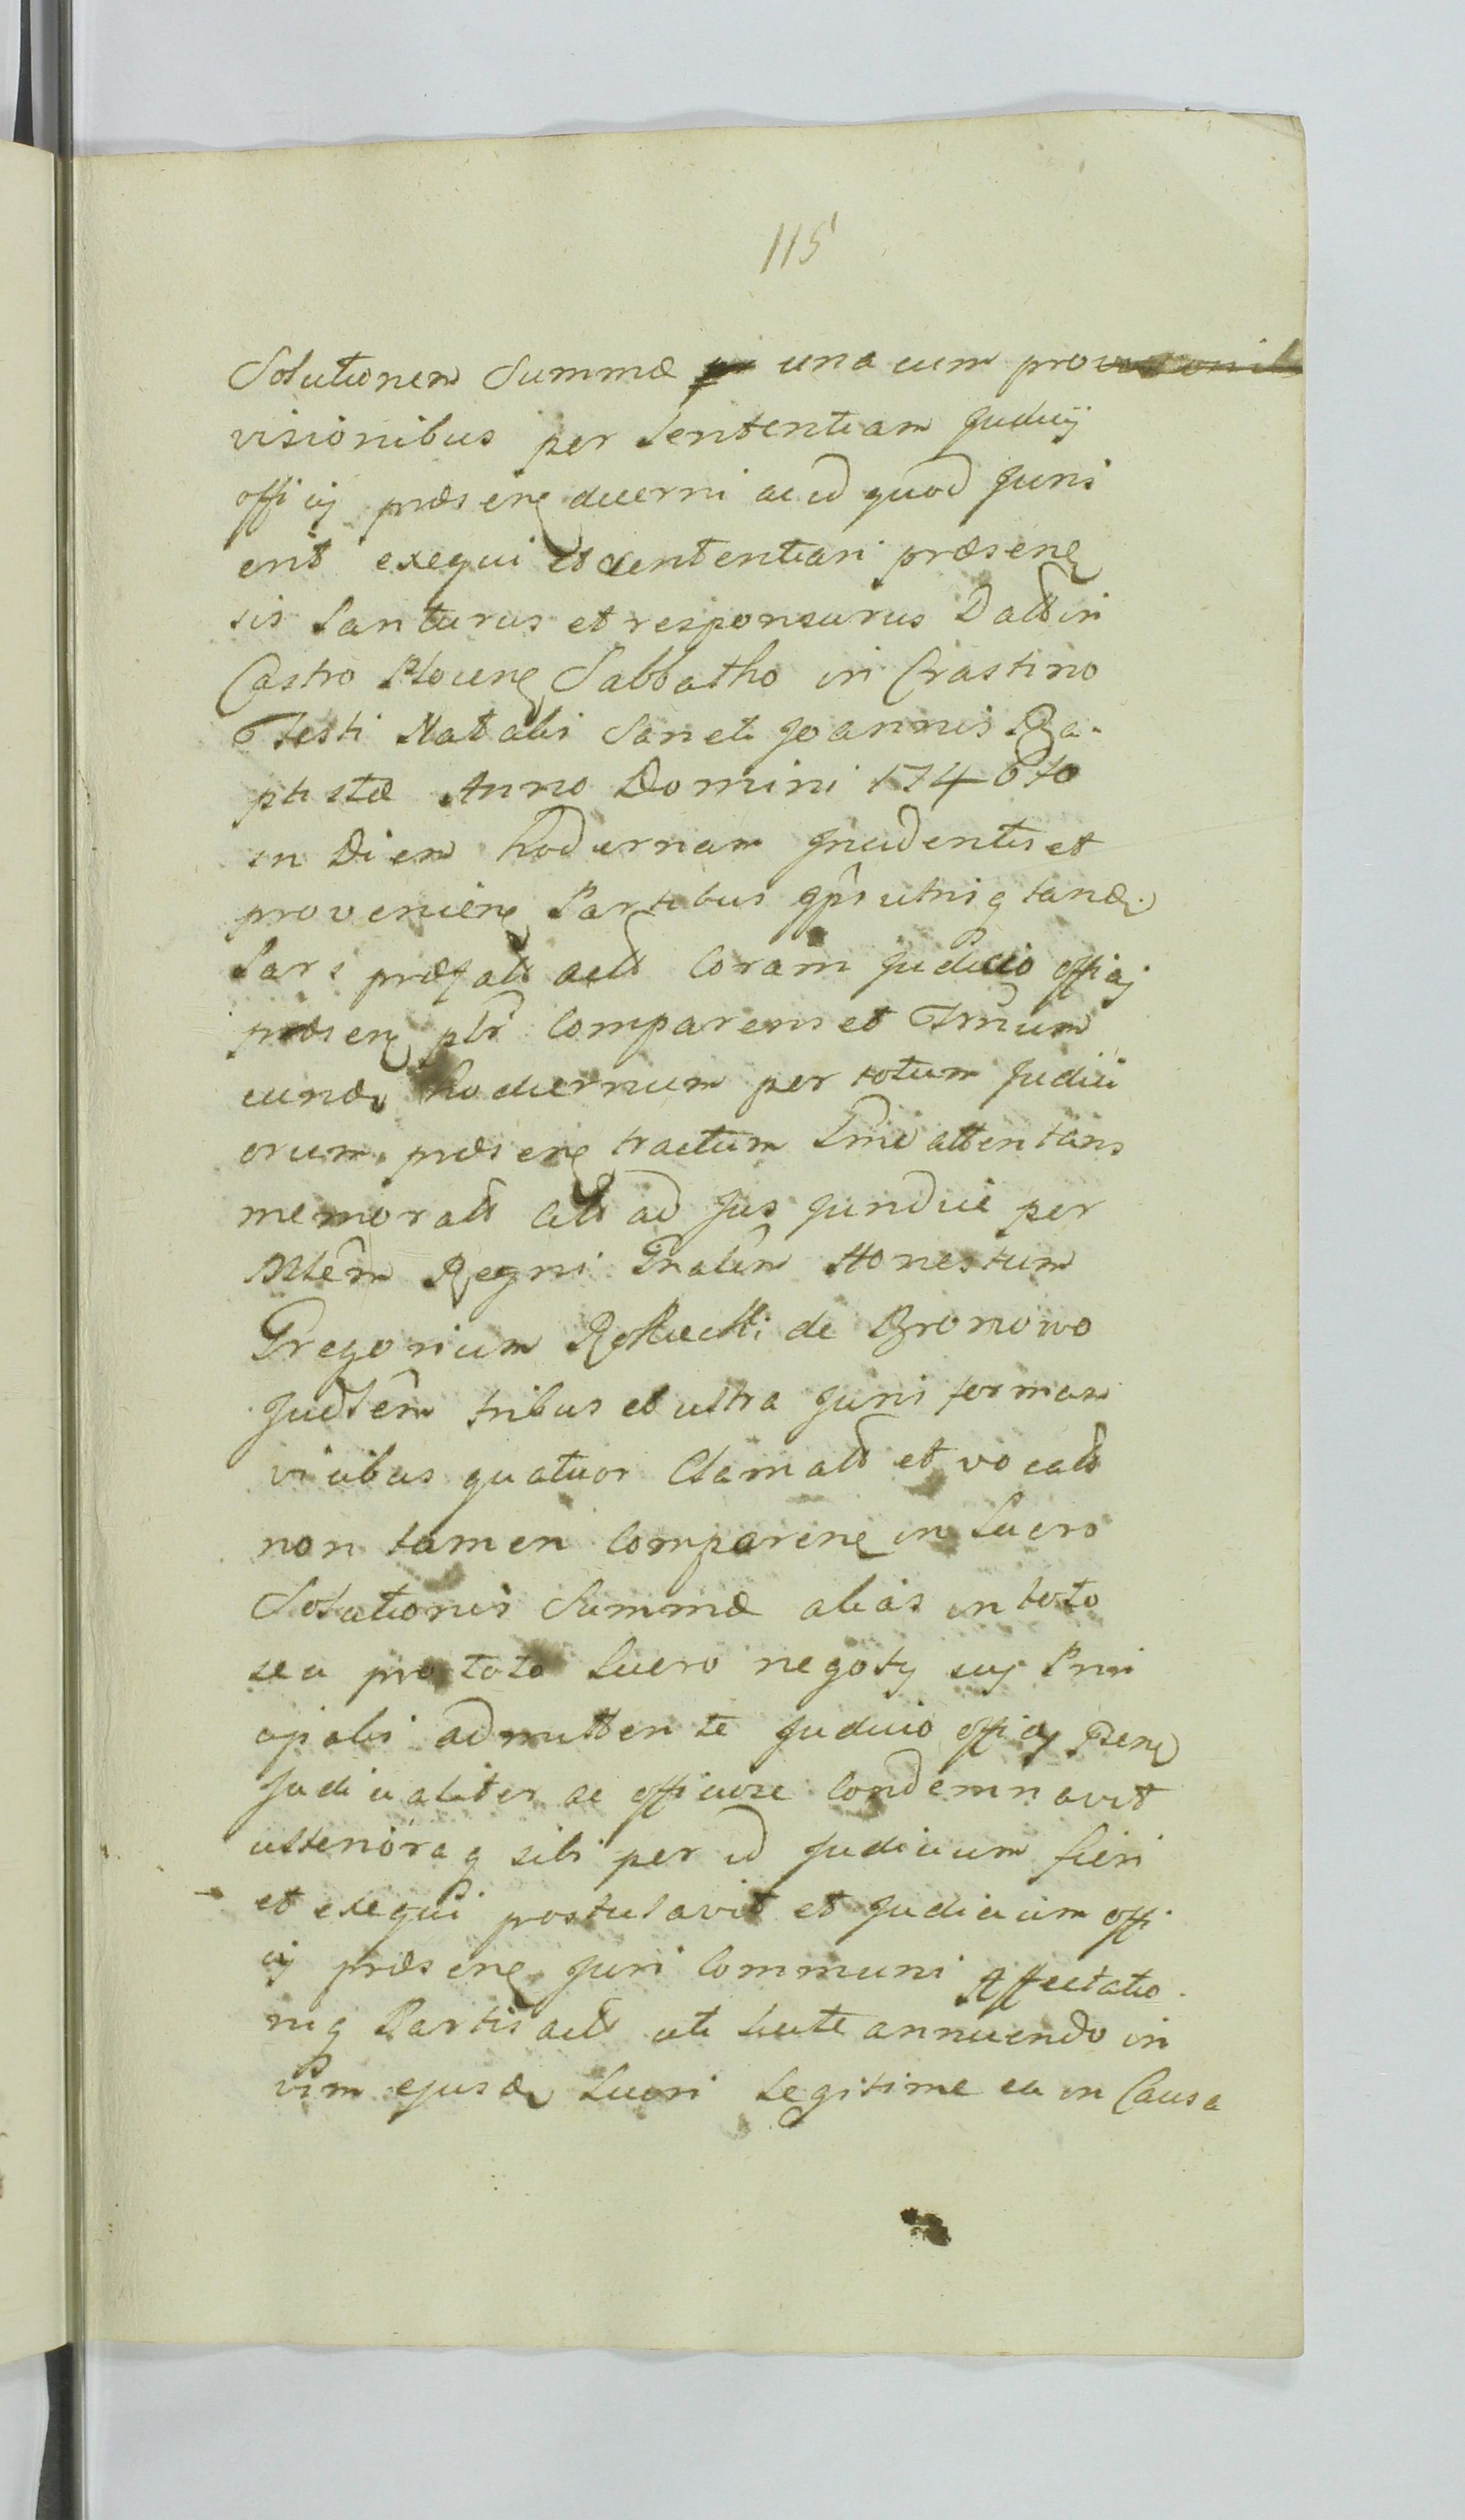 115
Solutionem Summæ una cum pro
visionibus per Sententiam Judicij
officij præsenę decerni ac id quod Juris
erit exequi et sententiari præsenę
sis Santurus et responsurus Datt in
Castro Plocenę Sabbatho in Crastino
Festi Natalis Sancti Joannis Ba-
ptistæ Anno Domini 1746to
in Diem hodiernam Incidentis et
provenienę Partibus ab utrisq tandę
Pars præfatt actt Coram Judicio officij
præsenę pltr Comparens et Trnum
eundę hodiernum per totum Judici
orum præsenę tractum Lme attentans
memoratt Citt ad Jus Juridice per
Mlem Regni Gnalem Honestum
Gregorium Rokicki de Bromowo
Judlem tribus et ultra Juris formam
vicibus quatuor Clamatt et vocatt
non tamen Comparenę in Lucro
Solutionis Summæ alias in toto
seu pro toto Lucro negotij sui Prin
cipalis admittente Judicio officij Psenę
Judicialiter ac officiose Condemnavit
ulterioraq sibi per id Judicium fieri
et exequi postulavit et Judicium offi
cij præsenę Juri Communi Affectatio-
niq Partis actt uti Juste annuendo in
vim ejusdę Lucri Legitime ea in Causa